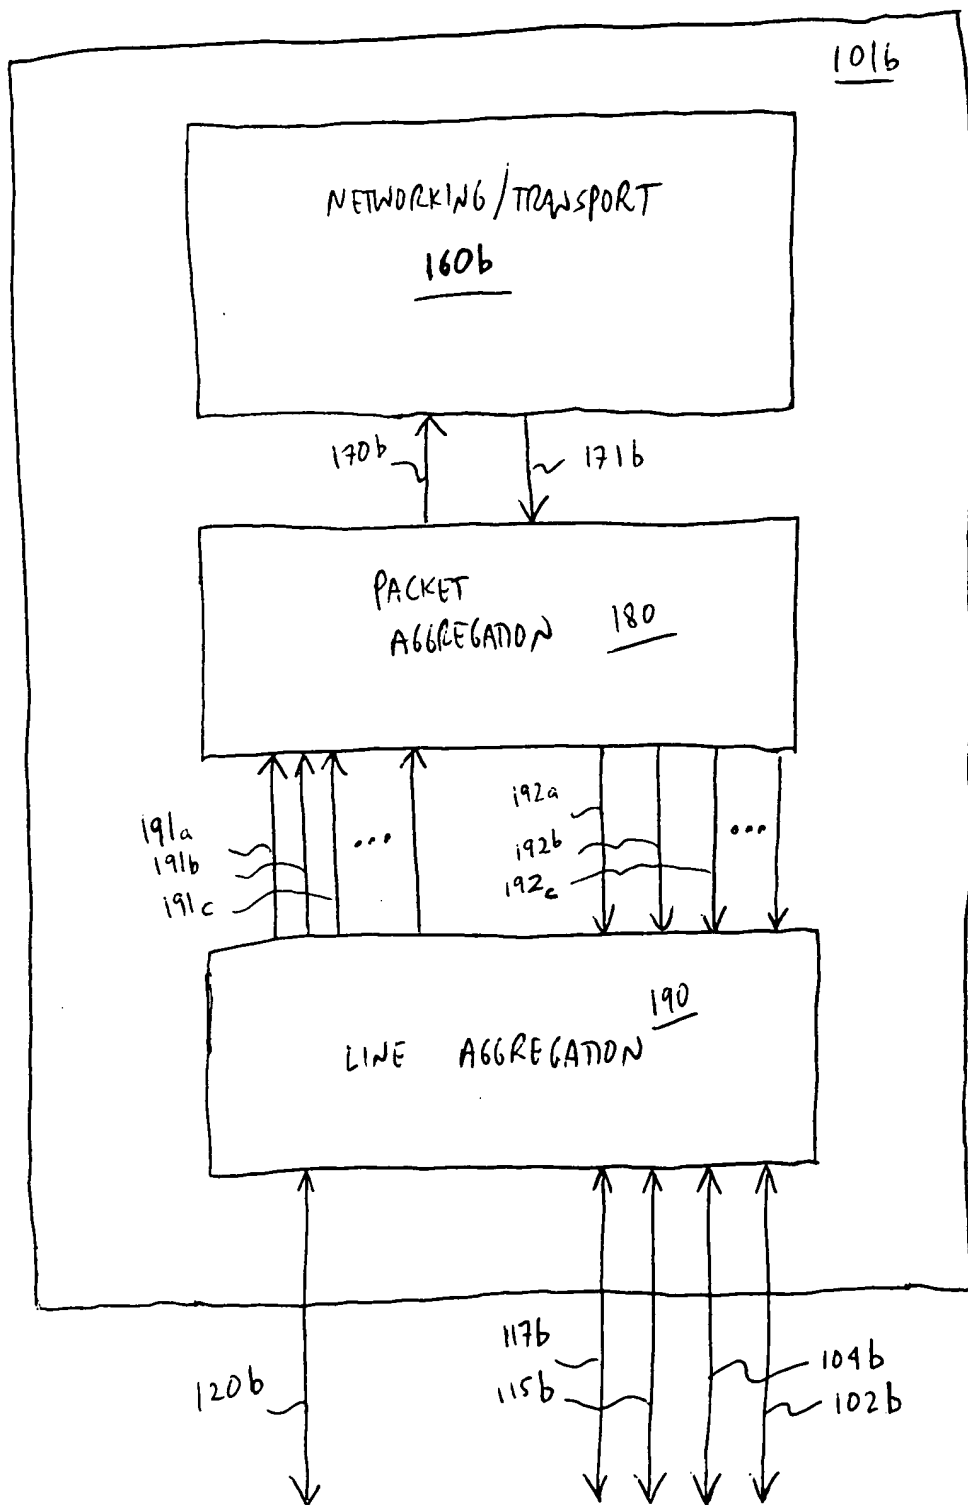 101b
NETWORKING/TRANSPORT
160b
170b
171b
PACKET
AGGREGATION 180
191a
191b
191c
...
192a
192b
192c
...
190
LINE AGGREGATION
120b
117b
115b
104b
102b